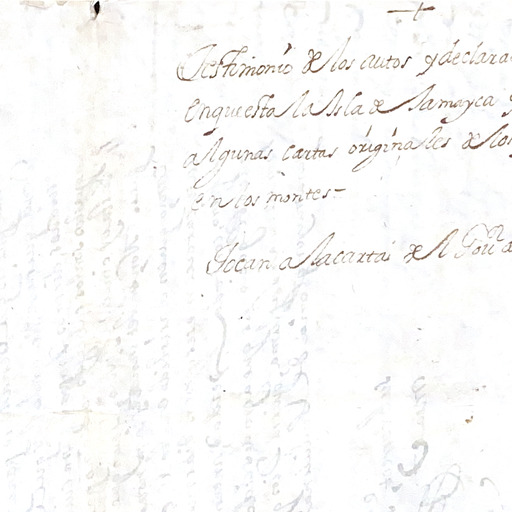 +
Testimonio de los autos y declara
en questa la Isla de Jamayca y
algunas cartas originales de los
en los montes -
Tocan a la carta de el Gou.or d